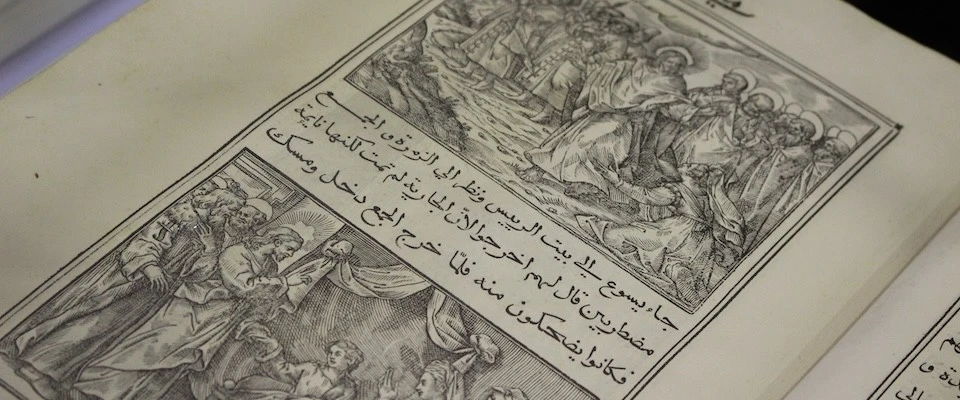 جاء يسوع الي بيت الرييس ونظر الي الزمرة و الجمع
مضطربين قال لهم اخرجوا لانّ الجارية لم تمت لكنها نايمة
فكانوا يضحكون منه فلمّا خرج الجمع دخل ومسك
الي